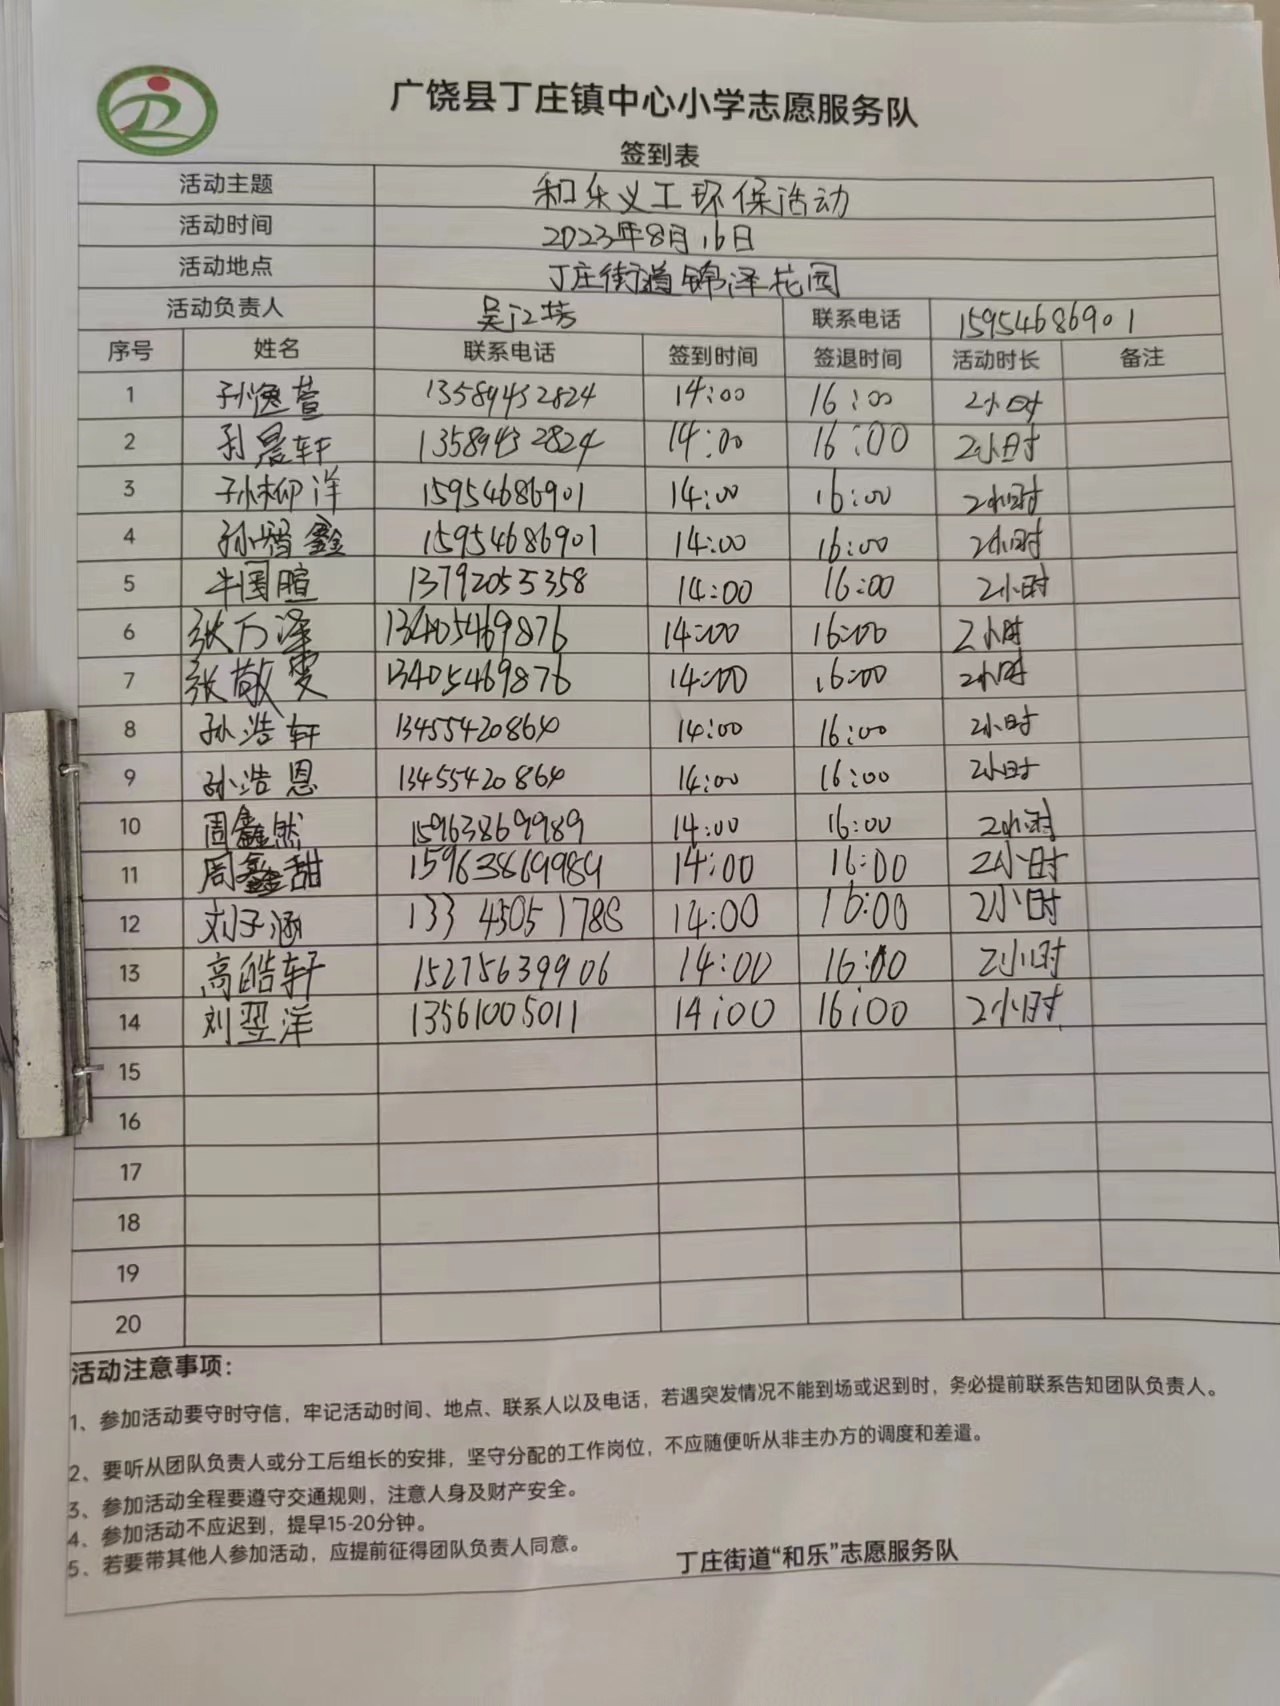 广饶县丁庄镇中心小学志愿服务队
签到表
活动主题 和乐义工环保活动
活动时间 2023年8月16日
活动地点 丁庄街道锦泽花园
活动负责人 吴江芳 联系电话 15954686901
序号 姓名 联系电话 签到时间 签退时间 活动时长 备注
1 孙逸萱 13589432824 14:00 16:00 2小时
2 孙晨轩 13589432824 14:00 16:00 2小时
3 孙柳洋 15954686901 14:00 16:00 2小时
4 孙智鑫 15954686901 14:00 16:00 2小时
5 牛国暄 13792055358 14:00 16:00 2小时
6 张万泽 13405469876 14:00 16:00 2小时
7 张敬雯 13405469876 14:00 16:00 2小时
8 孙浩轩 13455420864 14:00 16:00 2小时
9 孙浩恩 13455420864 14:00 16:00 2小时
10 周鑫然 15963869989 14:00 16:00 2小时
11 周鑫甜 15963869989 14:00 16:00 2小时
12 刘子涵 14:00 16:00 2小时
13 高皓轩 15275639906 14:00 16:00 2小时
14 刘翌洋 13561005011 14:00 16:00 2小时
15
16
17
18
19
20
活动注意事项：
1、参加活动要守时守信，牢记活动时间、地点、联系人以及电话，若遇突发情况不能到场或迟到时，务必提前联系告知团队负责人。
2、要听从团队负责人或分工后组长的安排，坚守分配的工作岗位，不应随便听从非主办方的调度和差遣。
3、参加活动全程要遵守交通规则，注意人身及财产安全。
4、参加活动不应迟到，提早15-20分钟。
5、若要带其他人参加活动，应提前征得团队负责人同意。
丁庄街道“和乐”志愿服务队